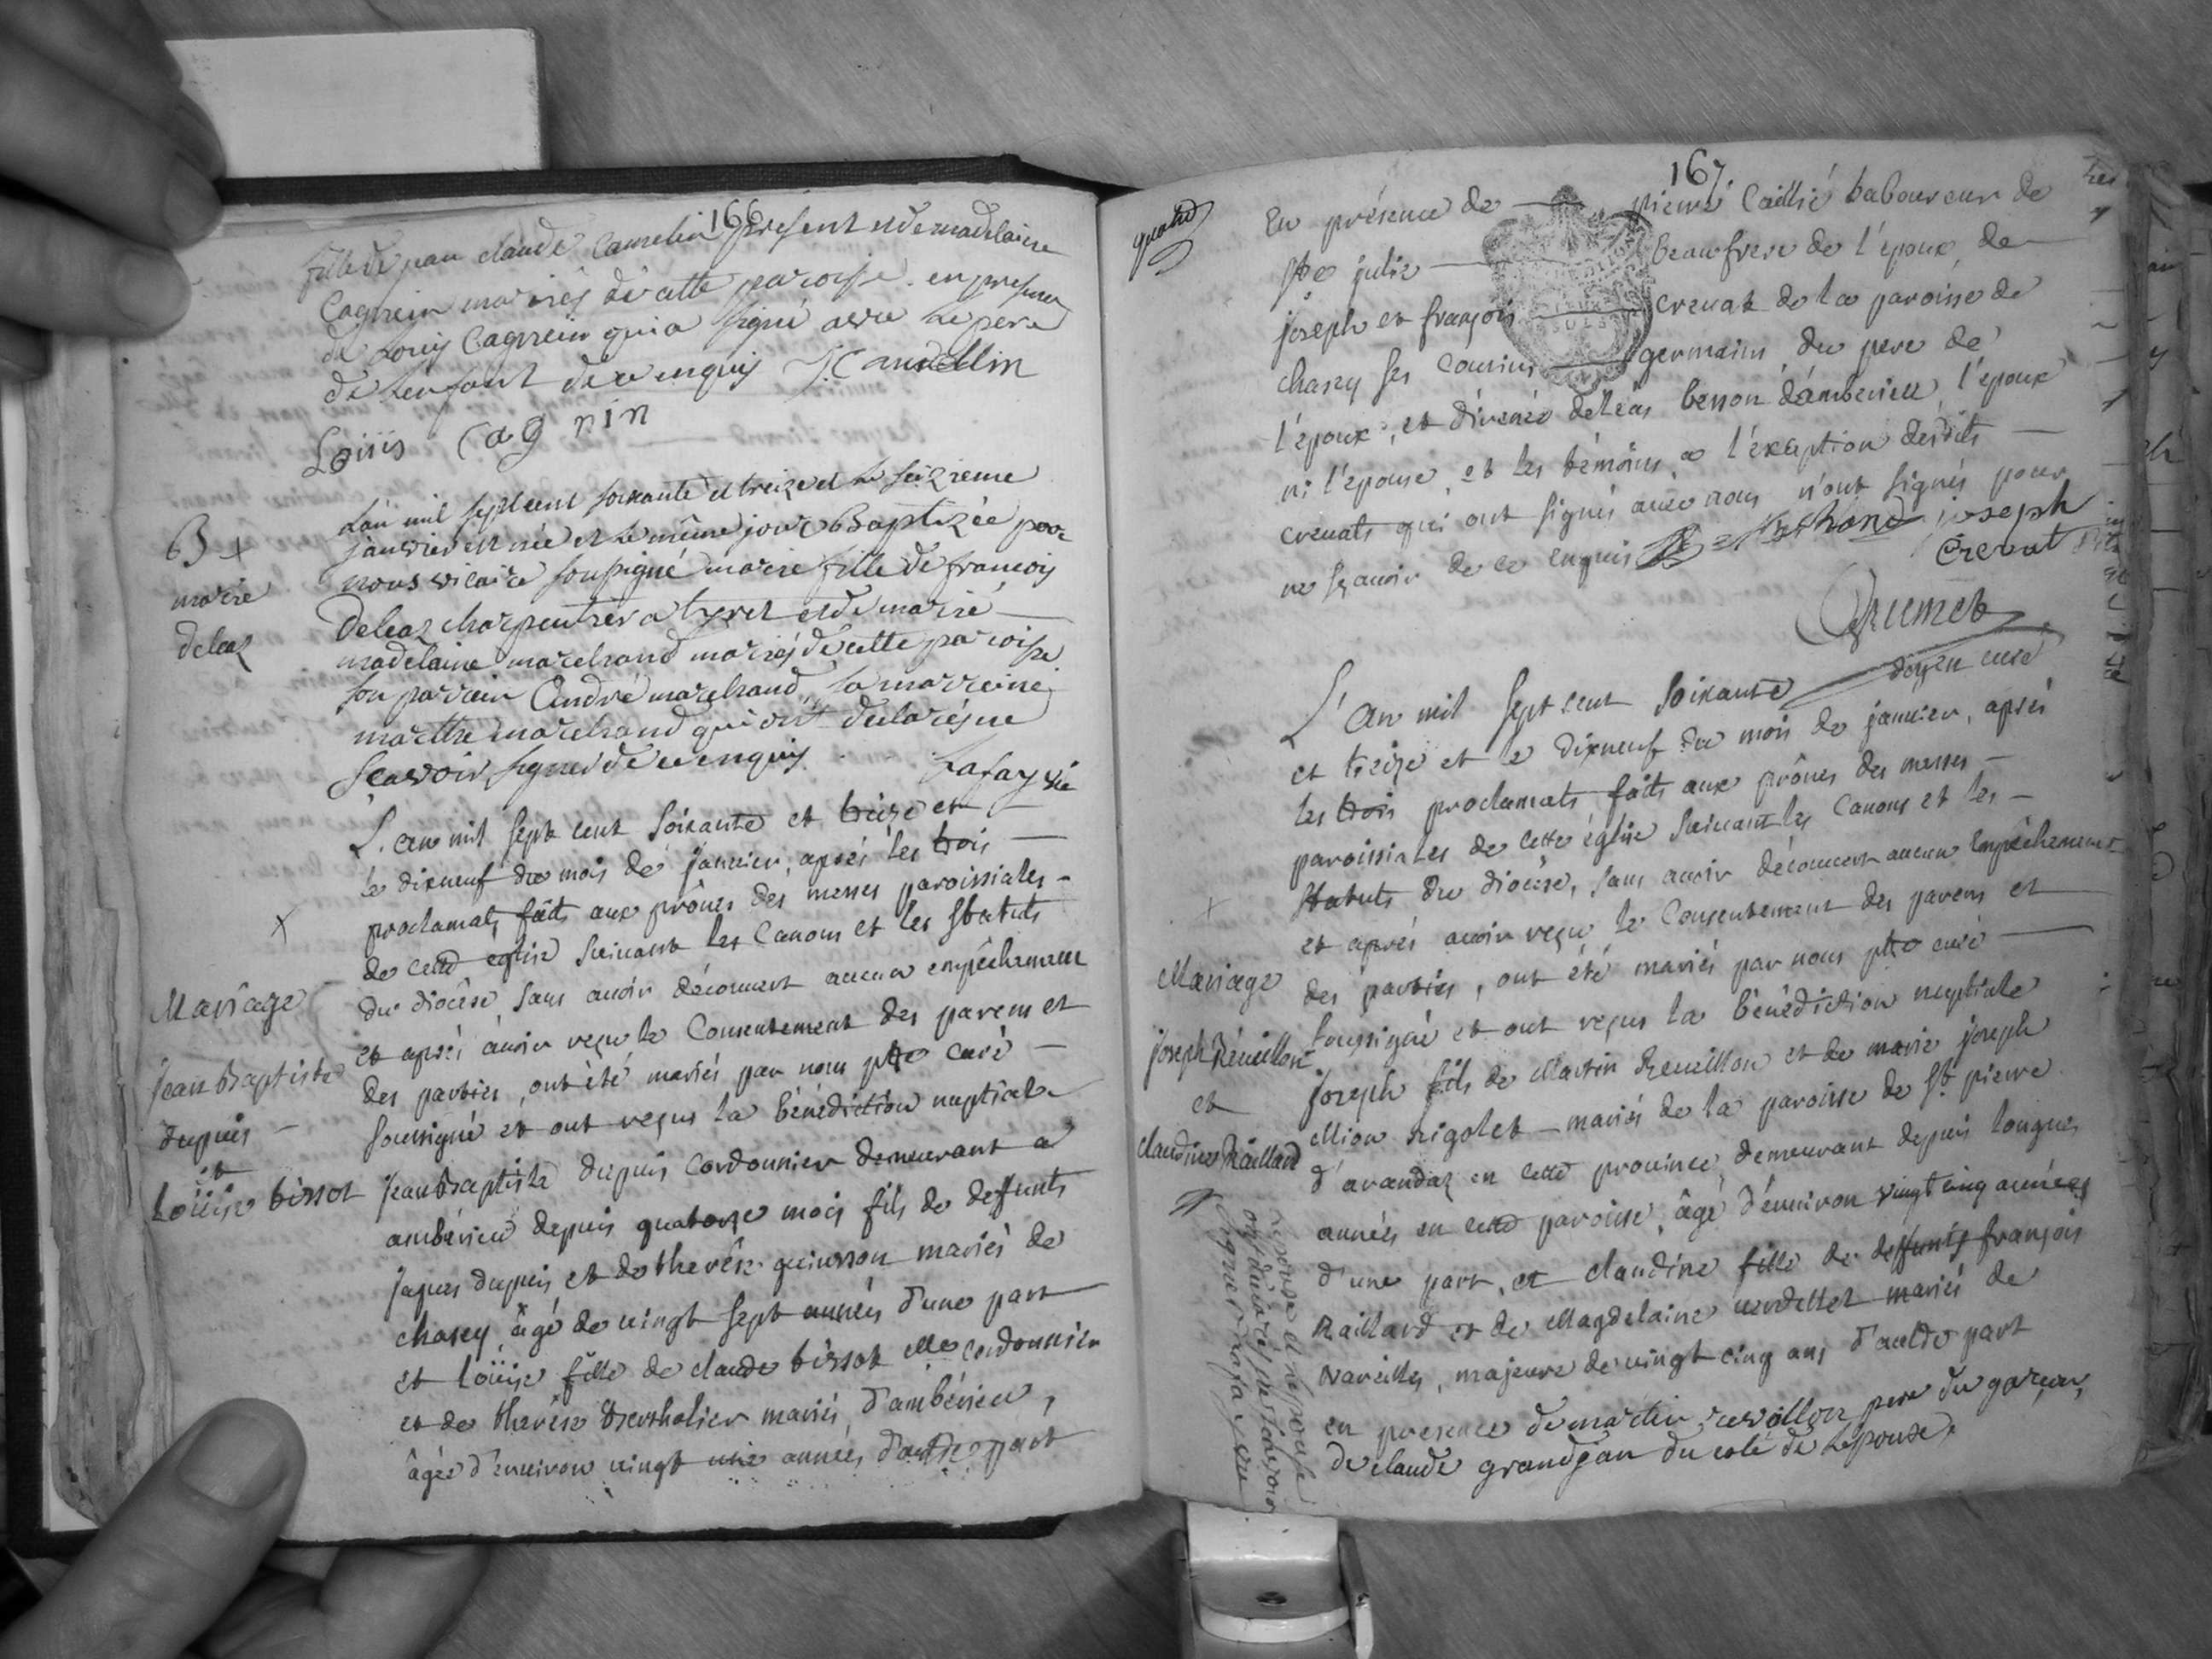 166
fille de jean claude Camelin present et de madelaine
Cagnin mariés de cette paroisse. en presence
de Louis Cagnin qui a signé avec le pere
de lenfant de ce enquis J Camellin
Loüis Cagnin
B +
marie
deleaz
L'an mil sept cent soixante et treize et le seizieme
janvier est née et le même jour Baptizée par
nous vicaire soussigné marie fille de francois
Deleaz charpentier a tyret et de marie
madelaine marchand mariés de cette paroisse
son parrain André marchand, la marreine
marthe marchand qui ont declarés ne
scavoir signer de ce enquis
Lafay vic
L'an mil sept cent soixante et treize et
le dixneuf du mois de janvier, aprés les trois
proclamats faits aux prônes des messes paroissiales
de cette église suivant les Canons et les statuts
du diocèse, sans avoir découvert aucun empêchement
et aprés avoir reçu le Consentement des parens et
des parties, ont été mariés par nous ptre curé
soussigné et ont reçus la bénédiction nuptiale
X
Mariage
jean Baptiste
dupuis
et
Loüise bissot
jean Baptiste dupuis cordonnier demeurant a
ambérieu depuis quatorze mois fils de deffunts
jaques dupuis et de therése guinsson mariés de
chasey âgé de vingt sept années d'une part
et loüise fille de claude bissot me cordonnier
et de therése Berthelier mariés d'ambérieu,
âgée d'environ vingt une années d'autre part
167
En présence de pierre Caillié laboureur de
ste julie beaufrere de l'époux, de
joseph et françois crenat de la paroisse de
chasey ses cousins germains du pere de
l'époux, et d'irenée deleas besson d'ambérieu, l'époux
ni l'épouse, et les témoins a l'exception desdits
crenats qui ont signés avec nous n'ont signés pour
ne sçavoir de ce enquis joseph
crenat
Grumet
doyen curé
L'an mil sept cent soixante
et treize et le dixneuf du mois de janvier, aprés
les trois proclamats faits aux prônes des messes
paroissiales de cette église suivant les Canons et les
statuts du diocèse, sans avoir découvert aucun empêchement
et aprés avoir reçu le Consentement des parens et
des parties, ont été mariés par nous ptre curé
soussigné et ont reçus la bénédiction nuptiale
Mariage
joseph Réveillon
et
claudine Raillard
joseph fils de Martin Reveillon et de marie joseph
Mion rigolet mariés de la paroisse de st pierre
d'arandaz en cette province, demeurant depuis longues
années en cette paroisse, âgé d'environ vingt cinq années
d'une part, et claudine fille de deffunts françois
Raillard et de Magdelaine verdellet mariés de
vareilles, majeure de vingt cinq ans d'autre part
en presence de martin revoillon pere du garçon,
de claude grandjan du coté de l'epouse,
l'epoux et l'epouse
ont declarés ne scavoir
signer Lafay vic